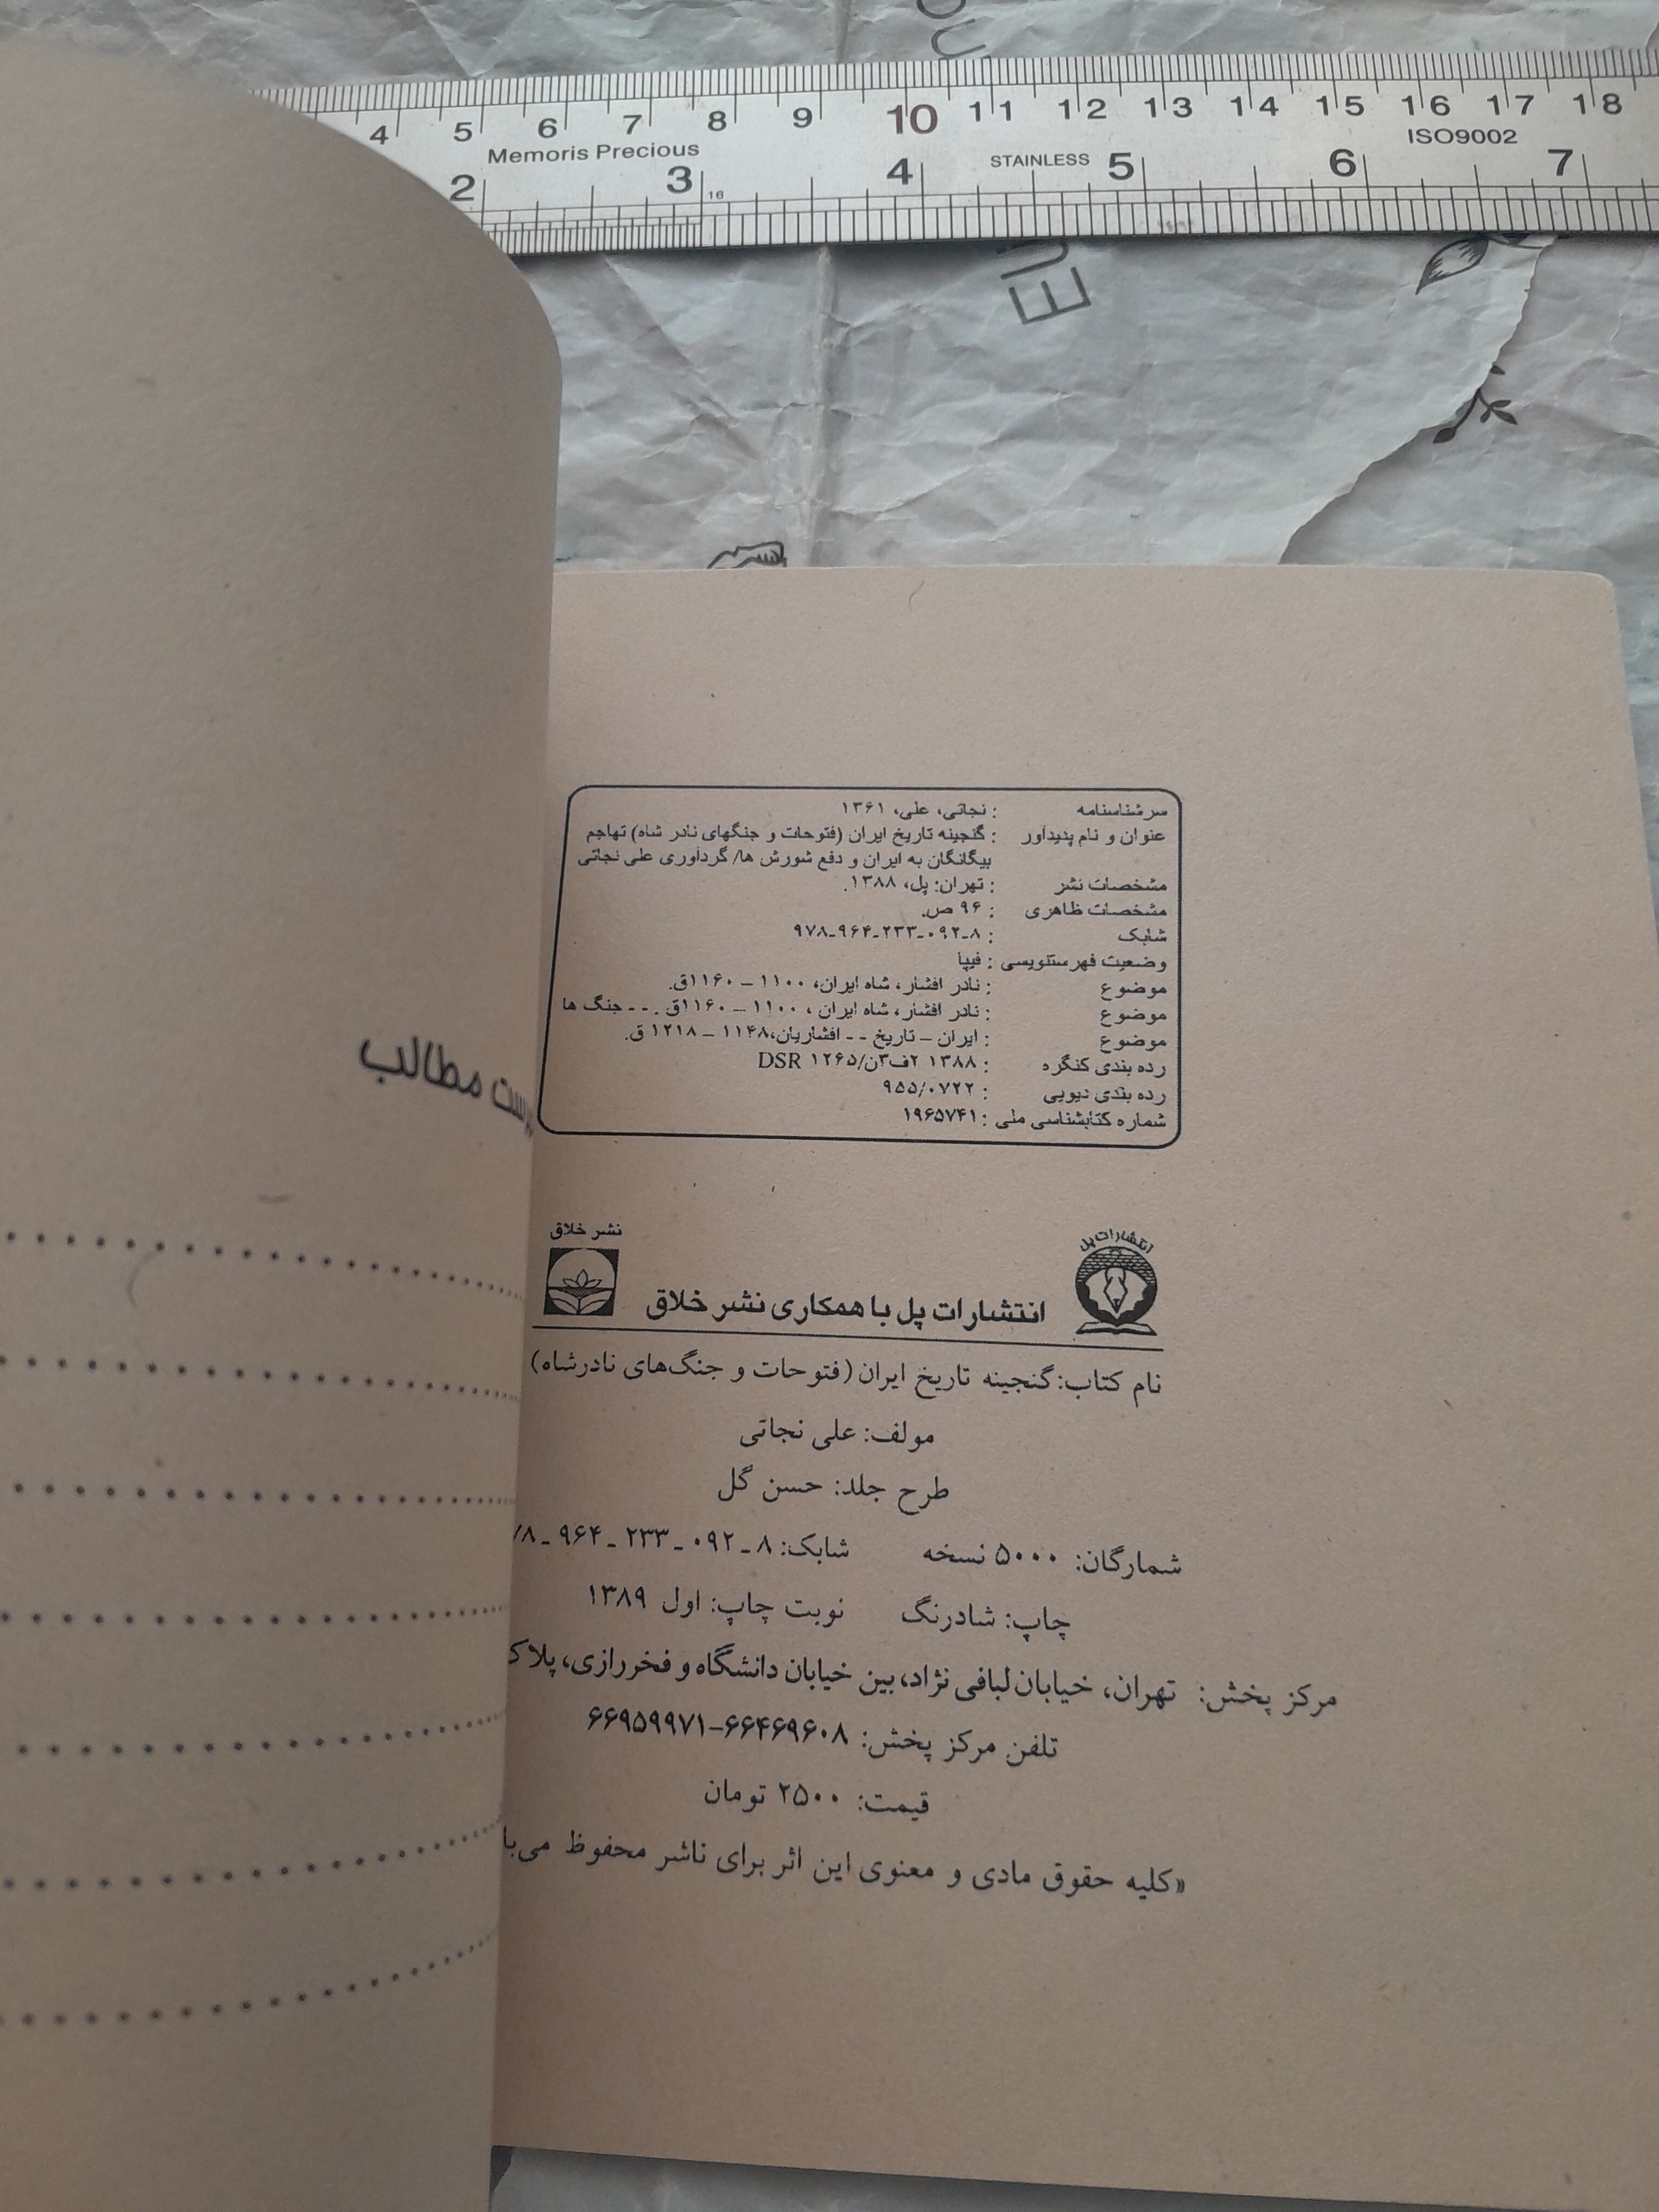 4 5 6 7 8 9 10 11 12 13 14 15 16 17 18
Memoris Precious
ISO9002
STAINLESS
2 3 4 5 6 7
16
سرشناسنامه : نجاتی، علی، ۱۳۶۱
عنوان و نام پدیدآور : گنجینه تاریخ ایران (فتوحات و جنگهای نادر شاه) تهاجم
بیگانگان به ایران و دفع شورش ها/ گردآوری علی نجاتی
مشخصات نشر : تهران: پل، ۱۳۸۸.
مشخصات ظاهری : ۹۶ ص.
شابک : ۹۷۸-۹۶۴-۲۳۳-۰۹۲-۸
وضعیت فهرستنویسی : فیپا
موضوع : نادر افشار، شاه ایران، ۱۱۰۰ – ۱۱۶۰ق.
موضوع : نادر افشار، شاه ایران ، ۱۱۰۰ – ۱۱۶۰ق . - - جنگ ها
موضوع : ایران – تاریخ - - افشاریان،۱۱۴۸ – ۱۲۱۸ ق.
رده بندی کنگره : ۱۳۸۸ ۲ف۳ن/DSR ۱۲۶۵
رده بندی دیویی : ۹۵۵/۰۷۲۲
شماره کتابشناسی ملی : ۱۹۶۵۷۴۱
ست مطالب
انتشارات پل
نشر خلاق
انتشارات پل با همکاری نشر خلاق
نام کتاب: گنجینه تاریخ ایران (فتوحات و جنگ‌های نادرشاه)
مولف: علی نجاتی
طرح جلد: حسن گل
شمارگان: ۵۰۰۰ نسخه شابک: ۸ ـ ۰۹۲ ـ ۲۳۳ ـ ۹۶۴ ـ ۷۸
چاپ: شادرنگ نوبت چاپ: اول ۱۳۸۹
مرکز پخش: تهران، خیابان لبافی نژاد، بین خیابان دانشگاه و فخررازی، پلاک
تلفن مرکز پخش: ۶۶۴۶۹۶۰۸–۶۶۹۵۹۹۷۱
قیمت: ۲۵۰۰ تومان
«کلیه حقوق مادی و معنوی این اثر برای ناشر محفوظ می‌با